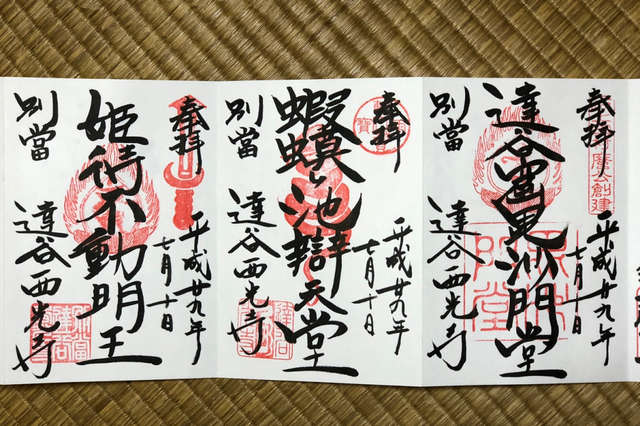 奉拝
平成廿九年
七月十日
達谷窟毘沙門堂
別當
達谷西光寺
奉拝
平成廿九年
七月十日
蝦蟆ヶ池辯天堂
別當
達谷西光寺
奉拝
平成廿九年
七月十日
姫待不動明王
別當
達谷西光寺